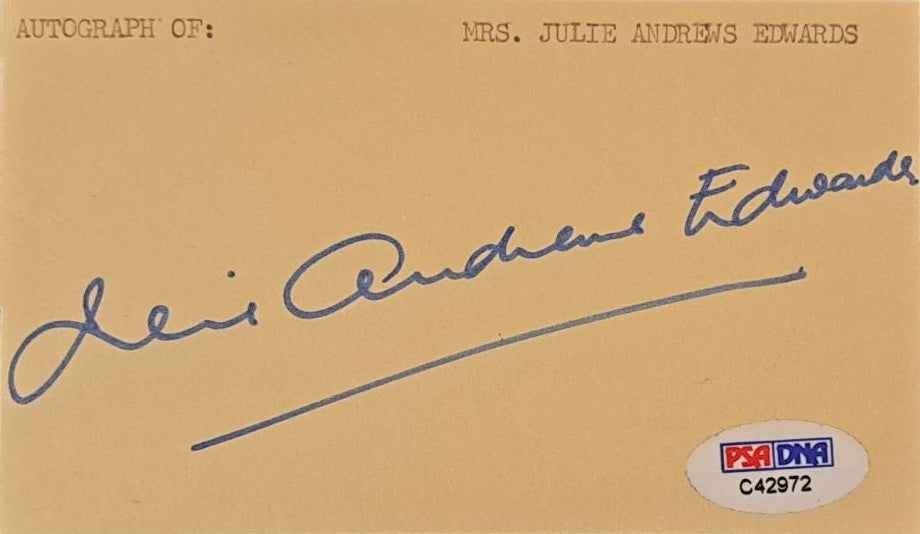 AUTOGRAPH OF: MRS. JULIE ANDREWS EDWARDS
Julie Andrews Edwards
PSA DNA
C42972